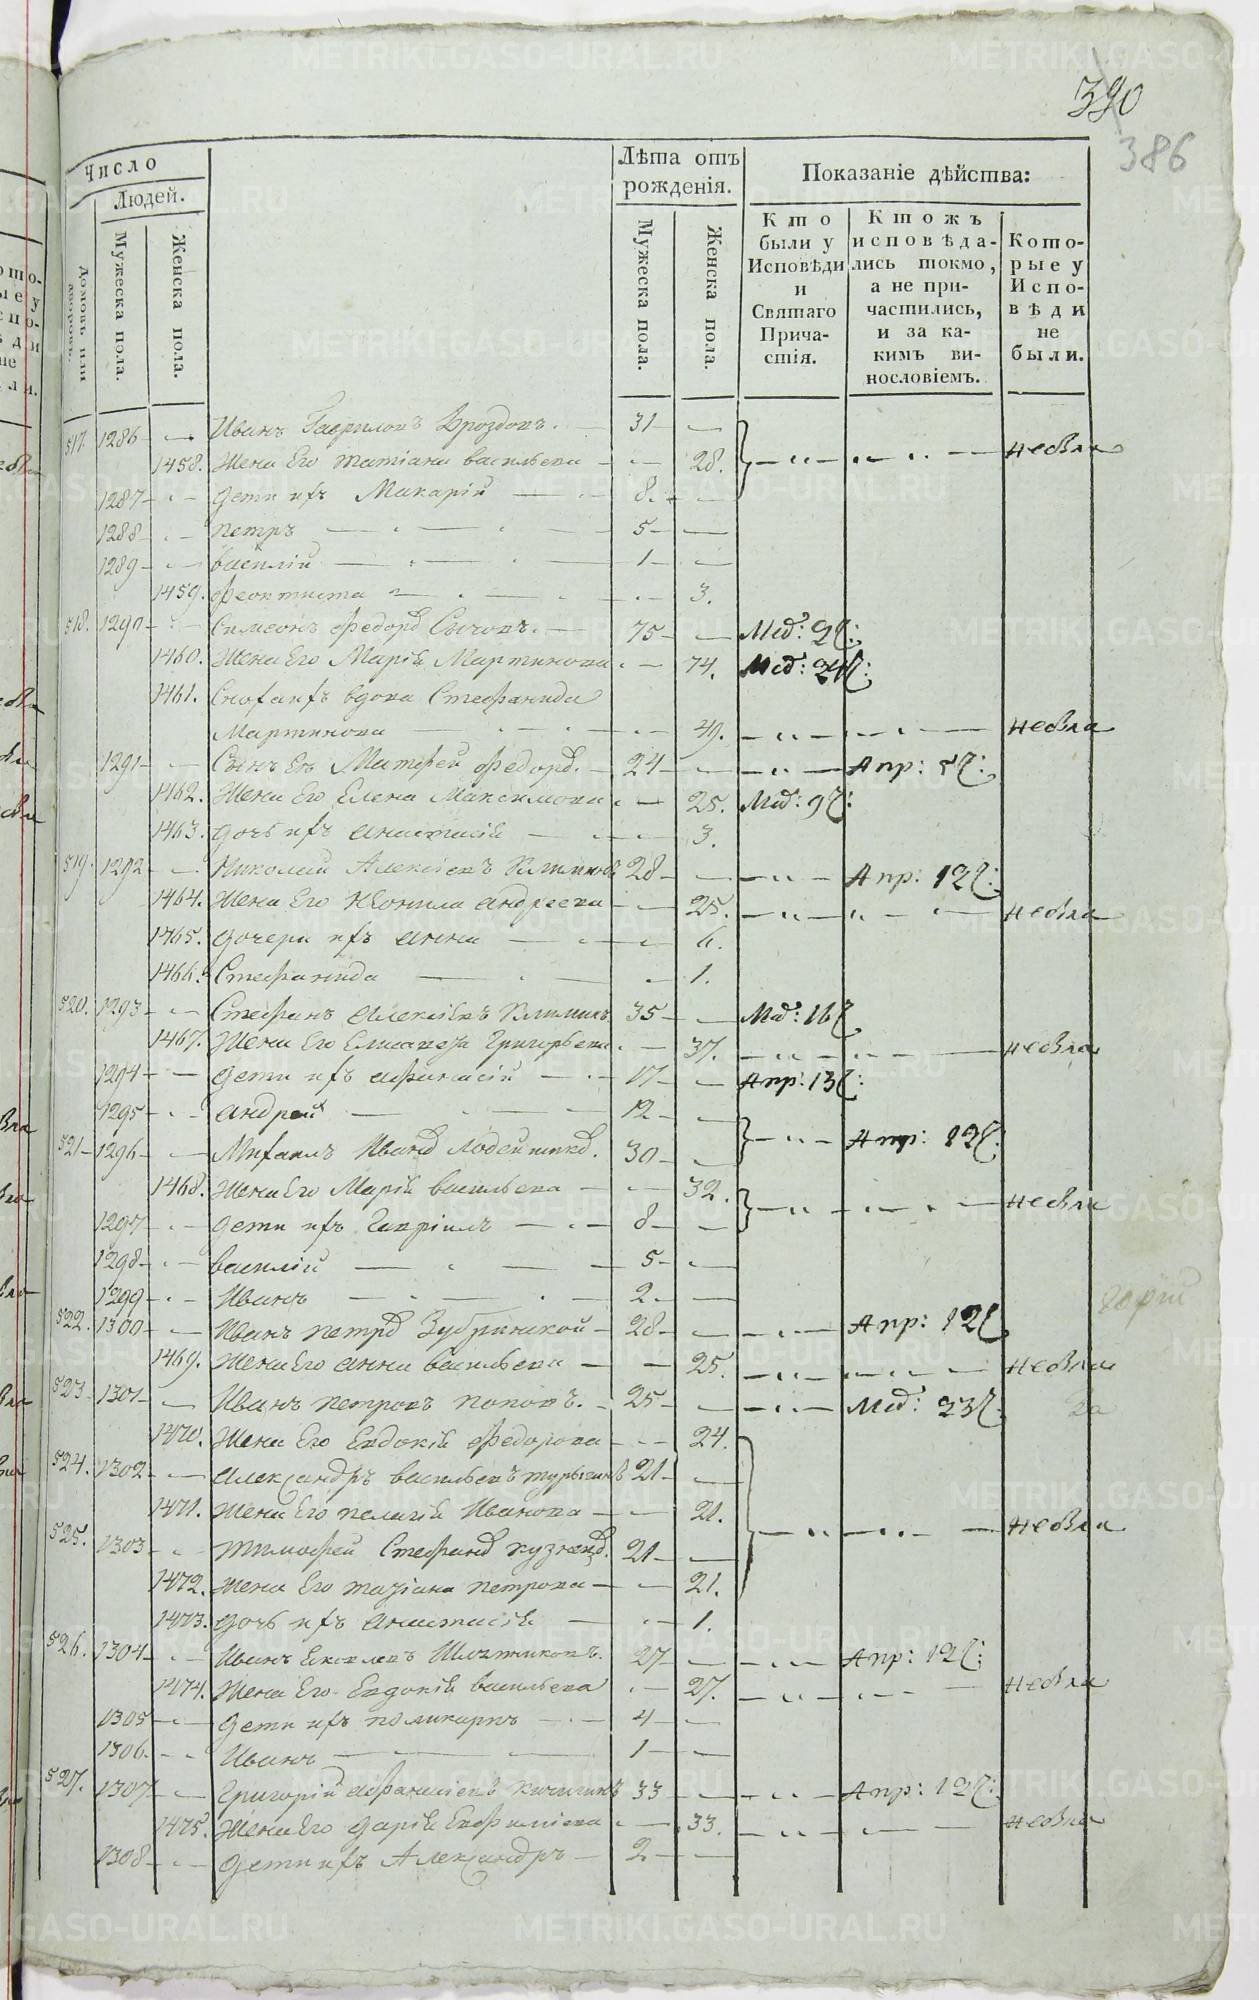 390
386
Число
Людей.
Домовъ или дворовъ.
Мужеска пола.
Женска пола.
Лѣта отъ рожденія.
Мужеска пола.
Женска пола.
Показаніе дѣйства:
Кто были у Исповѣди и Святаго Причастія.
Ктожъ исповѣдались токмо, а не причастились, и за какимъ винословіемъ.
Которые у Исповѣди не были.
517. 1286 Иванъ Гавриловъ Дроздовъ. 31
1458. Жена Его татіана васильева 28. небыл
1287 дети ихъ Макарій 8.
1288 петръ 5
1289 василій 1
1459. феоктиста 3.
518. 1290 Симеонъ федоро Сычовъ. 75
1460. Жена Его Марія Мартинова 74.
1461. Снохаихъ вдова Стефанида
Мартинова 49. небыла
1291 Сынъ Ея Матфей федоро. 24 Апр: 5
1462. Жена Его Елена Максимова 25.
1463. дочь ихъ анастасія 3.
519. 1292 Николай Алексіевъ 28 Апр: 12
1464. Жена Его Неонила андреева 25. небыла
1465. дочери ихъ анна 6.
1466. Стефанида 1.
520. 1293 Стефанъ алексіевъ 35
1467. Жена Его Елисавета Григорьева 37. небыла
1294 дети ихъ афанасій 17 Апр: 13
1295 андрей 12
521 1296 Михаилъ Ивано 30. Апр: 12
1468. Жена Его Марія васильева 32. небыли
1297 дети ихъ Гавріилъ 8
1298 василій 5
1299 Иванъ 2.
522. 1300 Иванъ петро Зубринской 28 Апр: 12
1469. Жена Его анна васильева 25. небыла
523 1301 Иванъ петровъ поповъ. 25
1470. Жена Его Евдокія федорова 24.
524. 1302 александръ васильевъ 21
1471. Жена Его пелагія Иванова 21. небыли
525. 1303 тимофей Стефано кузнецо. 21
1472. Жена Его татіана петрова 21.
1473. дочь ихъ анастасія 1.
526. 1304 Иванъ Яковлевъ 27 Апр: 12
1474. Жена Его Евдокія васильева 27. небыла
1305 дети ихъ поликарпъ 4
1306. Иванъ 1
527. 1307 Григорій афанасіевъ 33 Апр: 12
1475. Жена Его дарія Евфиміева 33. небыла
1308 дети ихъ Александръ 2
METRIKI.GASO-URAL.RU